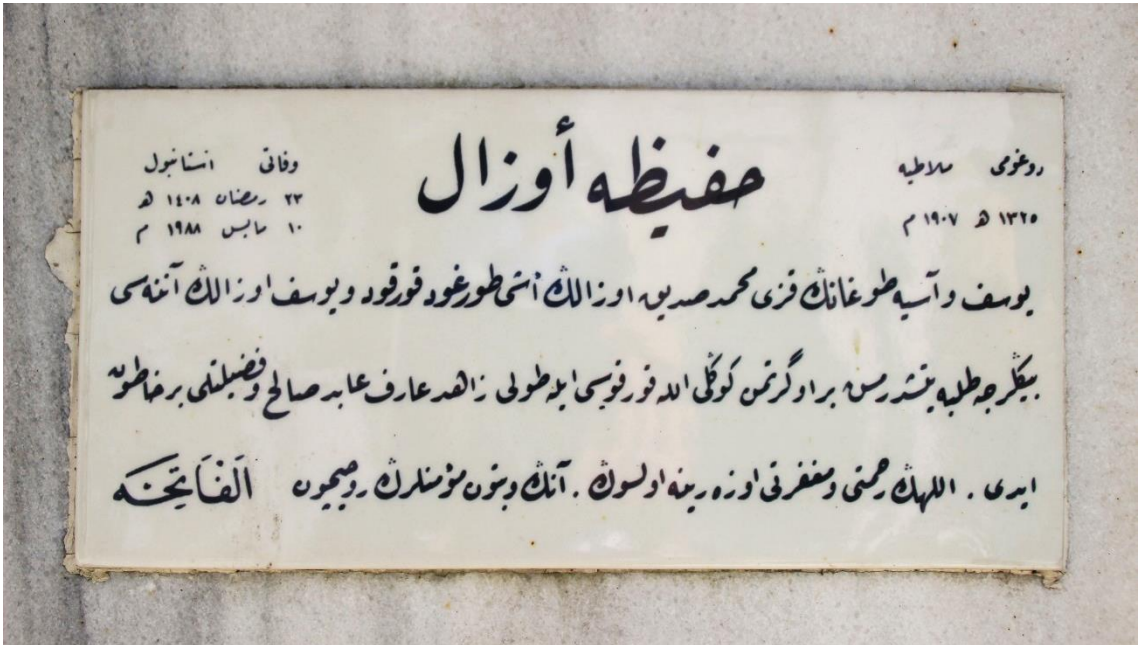 حفيظه أوزال
دوغومى ملاطيه
١٣٢٥ ه ١٩٠٧ م
وفاتى استانبول
٢٣ رمضان ١٤٠٨ ه
١٠ مايس ١٩٨٨ م
يوسف و آسيه طوغانڭ قزى محمد صديق اوزالڭ أشى طورغود قورقود و يوسف اوزالڭ آننه سى
بيڭلرجه طلبه يتشدرمس بر اوگرتمن كوڭلى الله قورقوسى ايله طولى زاهد عارف عابد صالح و فضيلتلى بر خاطون
ايدى . اللهڭ رحمتى و مغفرتى اوزه رينه اولسوڭ . آنڭ و بتون مؤمنلرڭ روحيچون اَلْفَاتِحَه